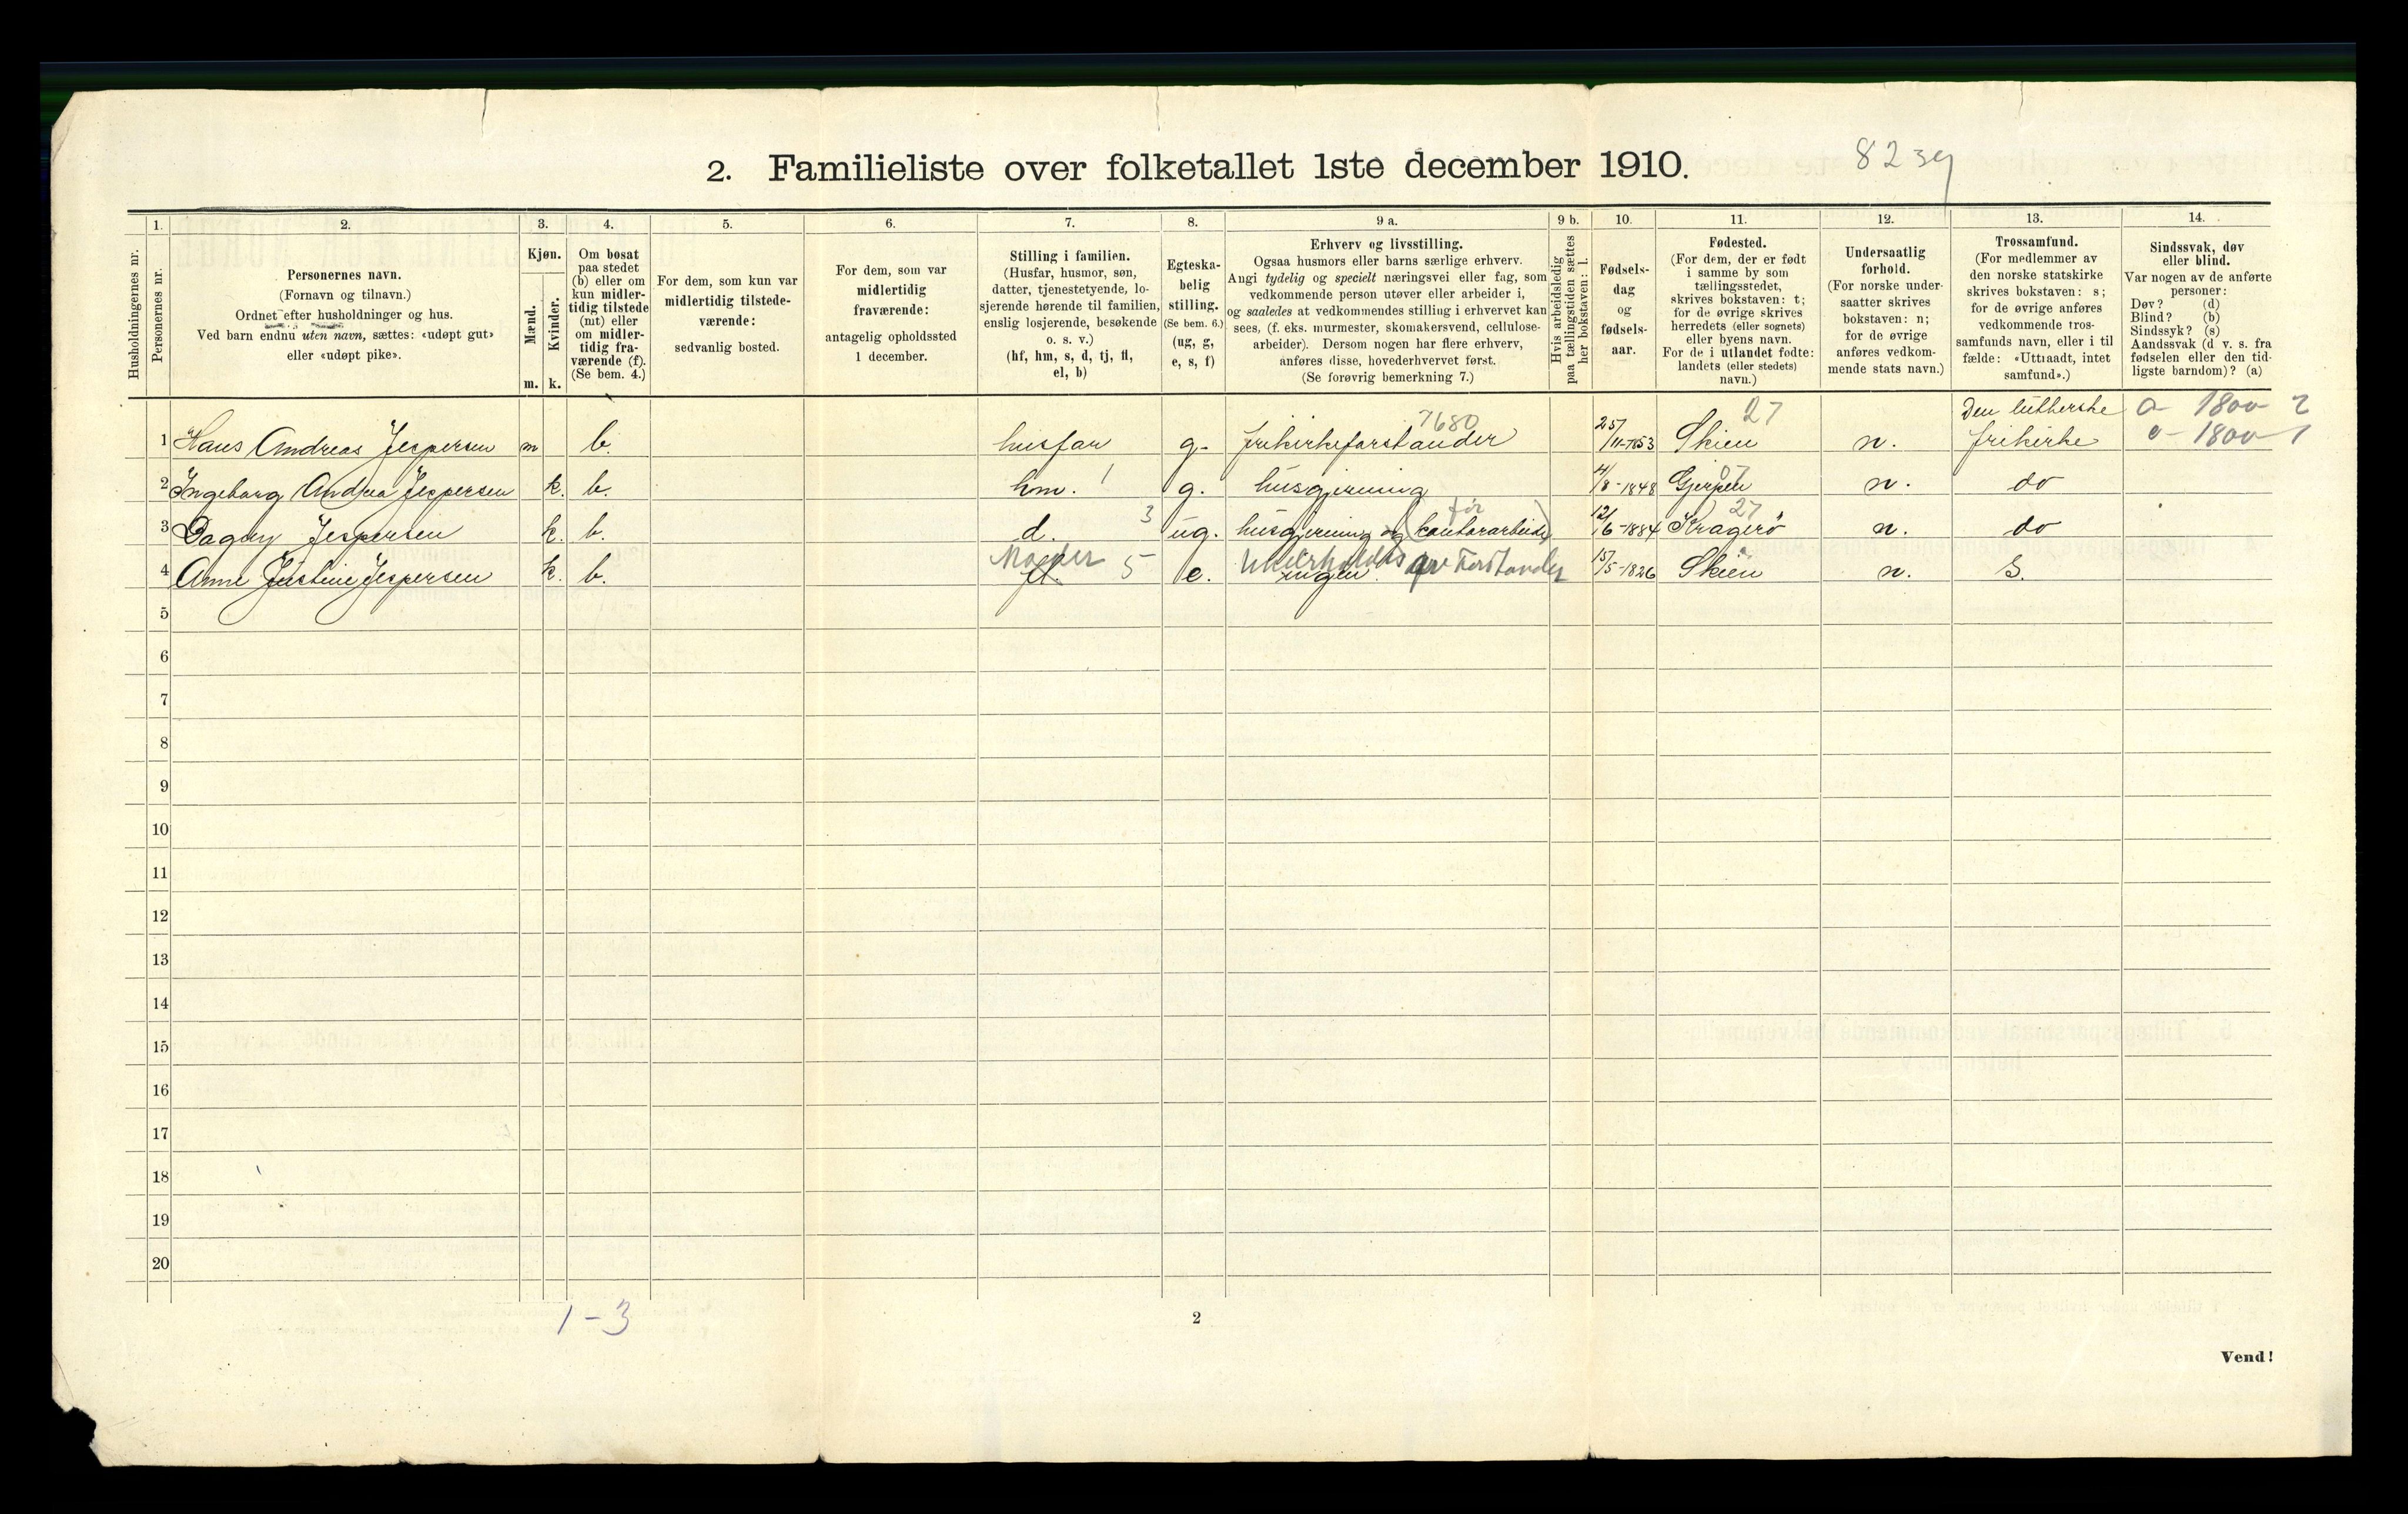 2. Familieliste over folketallet 1ste december 1910.
8239
Husholdningernes nr.
1.
Personernes nr.
2.
Personernes navn.
(Fornavn og tilnavn.)
Ordnet efter husholdninger og hus.
Ved barn endnu uten navn, sættes: «udøpt gut»
eller «udøpt pike».
3.
Kjøn.
Mænd.
Kvinder.
m.
k.
4.
Om bosat
paa stedet
(b) eller om
kun midler-
tidig tilstede
(mt) eller
om midler-
tidig fra-
værende (f).
(Se bem. 4.)
5.
For dem, som kun var
midlertidig tilstede-
værende:
sedvanlig bosted.
6.
For dem, som var
midlertidig
fraværende:
antagelig opholdssted
1 december.
7.
Stilling i familien.
(Husfar, husmor, søn,
datter, tjenestetyende, lo-
sjerende hørende til familien,
enslig losjerende, besøkende
o. s. v.)
(hf, hm, s, d, tj, fl,
el, b)
8.
Egteska-
belig
stilling.
(Se bem. 6.)
(ug, g,
e, s, f)
9 a.
Erhverv og livsstilling.
Ogsaa husmors eller barns særlige erhverv.
Angi tydelig og specielt næringsvei eller fag, som
vedkommende person utøver eller arbeider i,
og saaledes at vedkommendes stilling i erhvervet kan
sees, (f. eks. murmester, skomakersvend, cellulose-
arbeider). Dersom nogen har flere erhverv,
anføres disse, hovederhvervet først.
(Se forøvrig bemerkning 7.)
9 b.
Hvis arbeidsledig
paa tællingstiden sættes
her bokstaven: l.
10.
Fødsels-
dag
og
fødsels-
aar.
11.
Fødested.
(For dem, der er født
i samme by som
tællingsstedet,
skrives bokstaven: t;
for de øvrige skrives
herredets (eller sognets)
eller byens navn.
For de i utlandet fødte:
landets (eller stedets)
navn.)
12.
Undersaatlig
forhold.
(For norske under-
saatter skrives
bokstaven: n;
for de øvrige
anføres vedkom-
mende stats navn.)
13.
Trossamfund.
(For medlemmer av
den norske statskirke
skrives bokstaven: s;
for de øvrige anføres
vedkommende tros-
samfunds navn, eller i til-
fælde: «Uttraadt, intet
samfund».)
14.
Sindssvak, døv
eller blind.
Var nogen av de anførte
personer:
Døv? (d)
Blind? (b)
Sindssyk? (s)
Aandssvak (d v. s. fra
fødselen eller den tid-
ligste barndom)? (a)
7680 27 Den lutherske a - 1800 2
1 Hans Andreas Jespersen m b. husfar g. frikirkeforstander 25/11-1853 Skien n. frikirke e - 1800 - 1
2 Ingeborg Andrea Jespersen k. b. hm. 1 g. husgjerning 4/8-1848 Gjerpen 07 n. do
før 27
3 Dagny Jespersen k. b. d. 3 ug. husgjerning og (kontorarbeide) 12/6-1884 Kragerö n. do
4 Anne Justine Jespersen k. b. fl. Moder 5 e. ingen Underholdes av Forstander 15/5-1826 Skien n. S.
5
6
7
8
9
10
11
12
13
14
15
16
17
18
19
20
1-3
2
Vend!